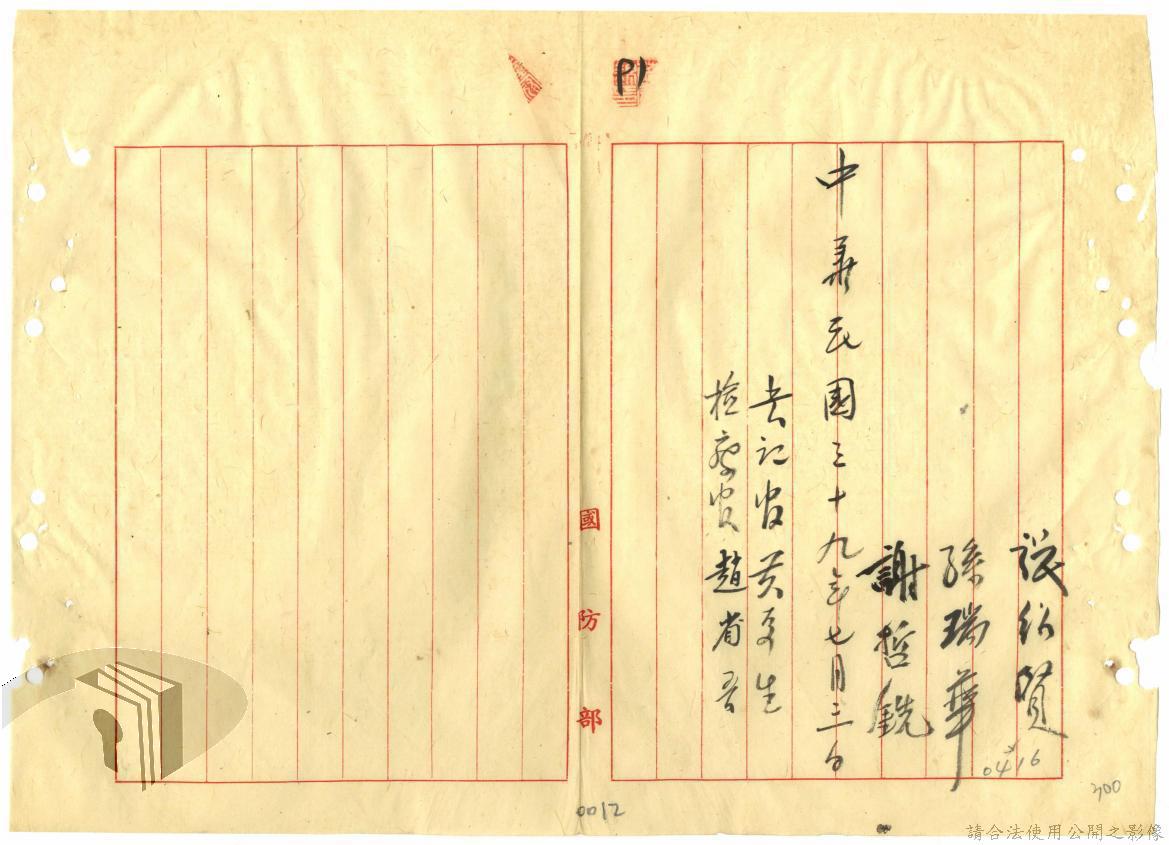 P1
張紹賢
孫瑞華
謝哲銑
中華民國三十九年七月三日
書記官黄夏生
檢察官趙省吾
國防部
0416
300
0012
請合法使用公開之影像